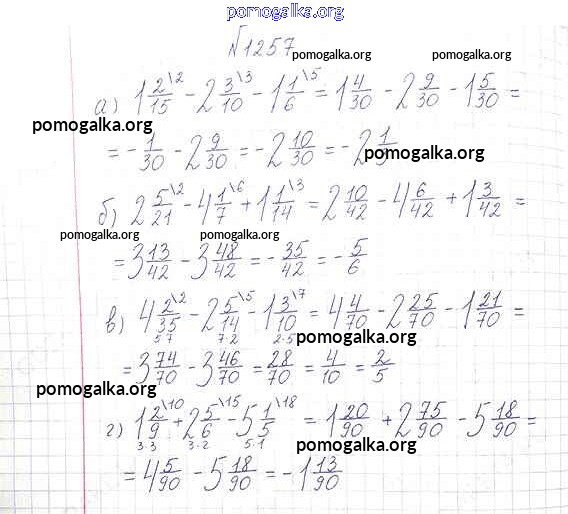 pomogalka.org
№1257
pomogalka.org pomogalka.org
а) 1 2/15 \2 − 2 3/10 \3 − 1 1/6 \5 = 1 4/30 − 2 9/30 − 1 5/30 =
pomogalka.org
= − 1/30 − 2 9/30 = − 2 10/30 = − 2 1/
pomogalka.org
б) 2 5/21 \2 − 4 1/7 \6 + 1 1/14 \3 = 2 10/42 − 4 6/42 + 1 3/42 =
pomogalka.org pomogalka.org
= 3 13/42 − 3 48/42 = − 35/42 = − 5/6
в) 4 2/35 \2 − 2 5/14 \5 − 1 3/10 \7 = 4 4/70 − 2 25/70 − 1 21/70 =
5·7 7·2 2·5
pomogalka.org
= 3 74/70 − 3 46/70 = 28/70 = 4/10 = 2/5
pomogalka.org
г) 1 2/9 \10 + 2 5/6 \15 − 5 1/5 \18 = 1 20/90 + 2 75/90 − 5 18/90 =
3·3 3·2 5·1
pomogalka.org
= 4 5/90 − 5 18/90 = − 1 13/90